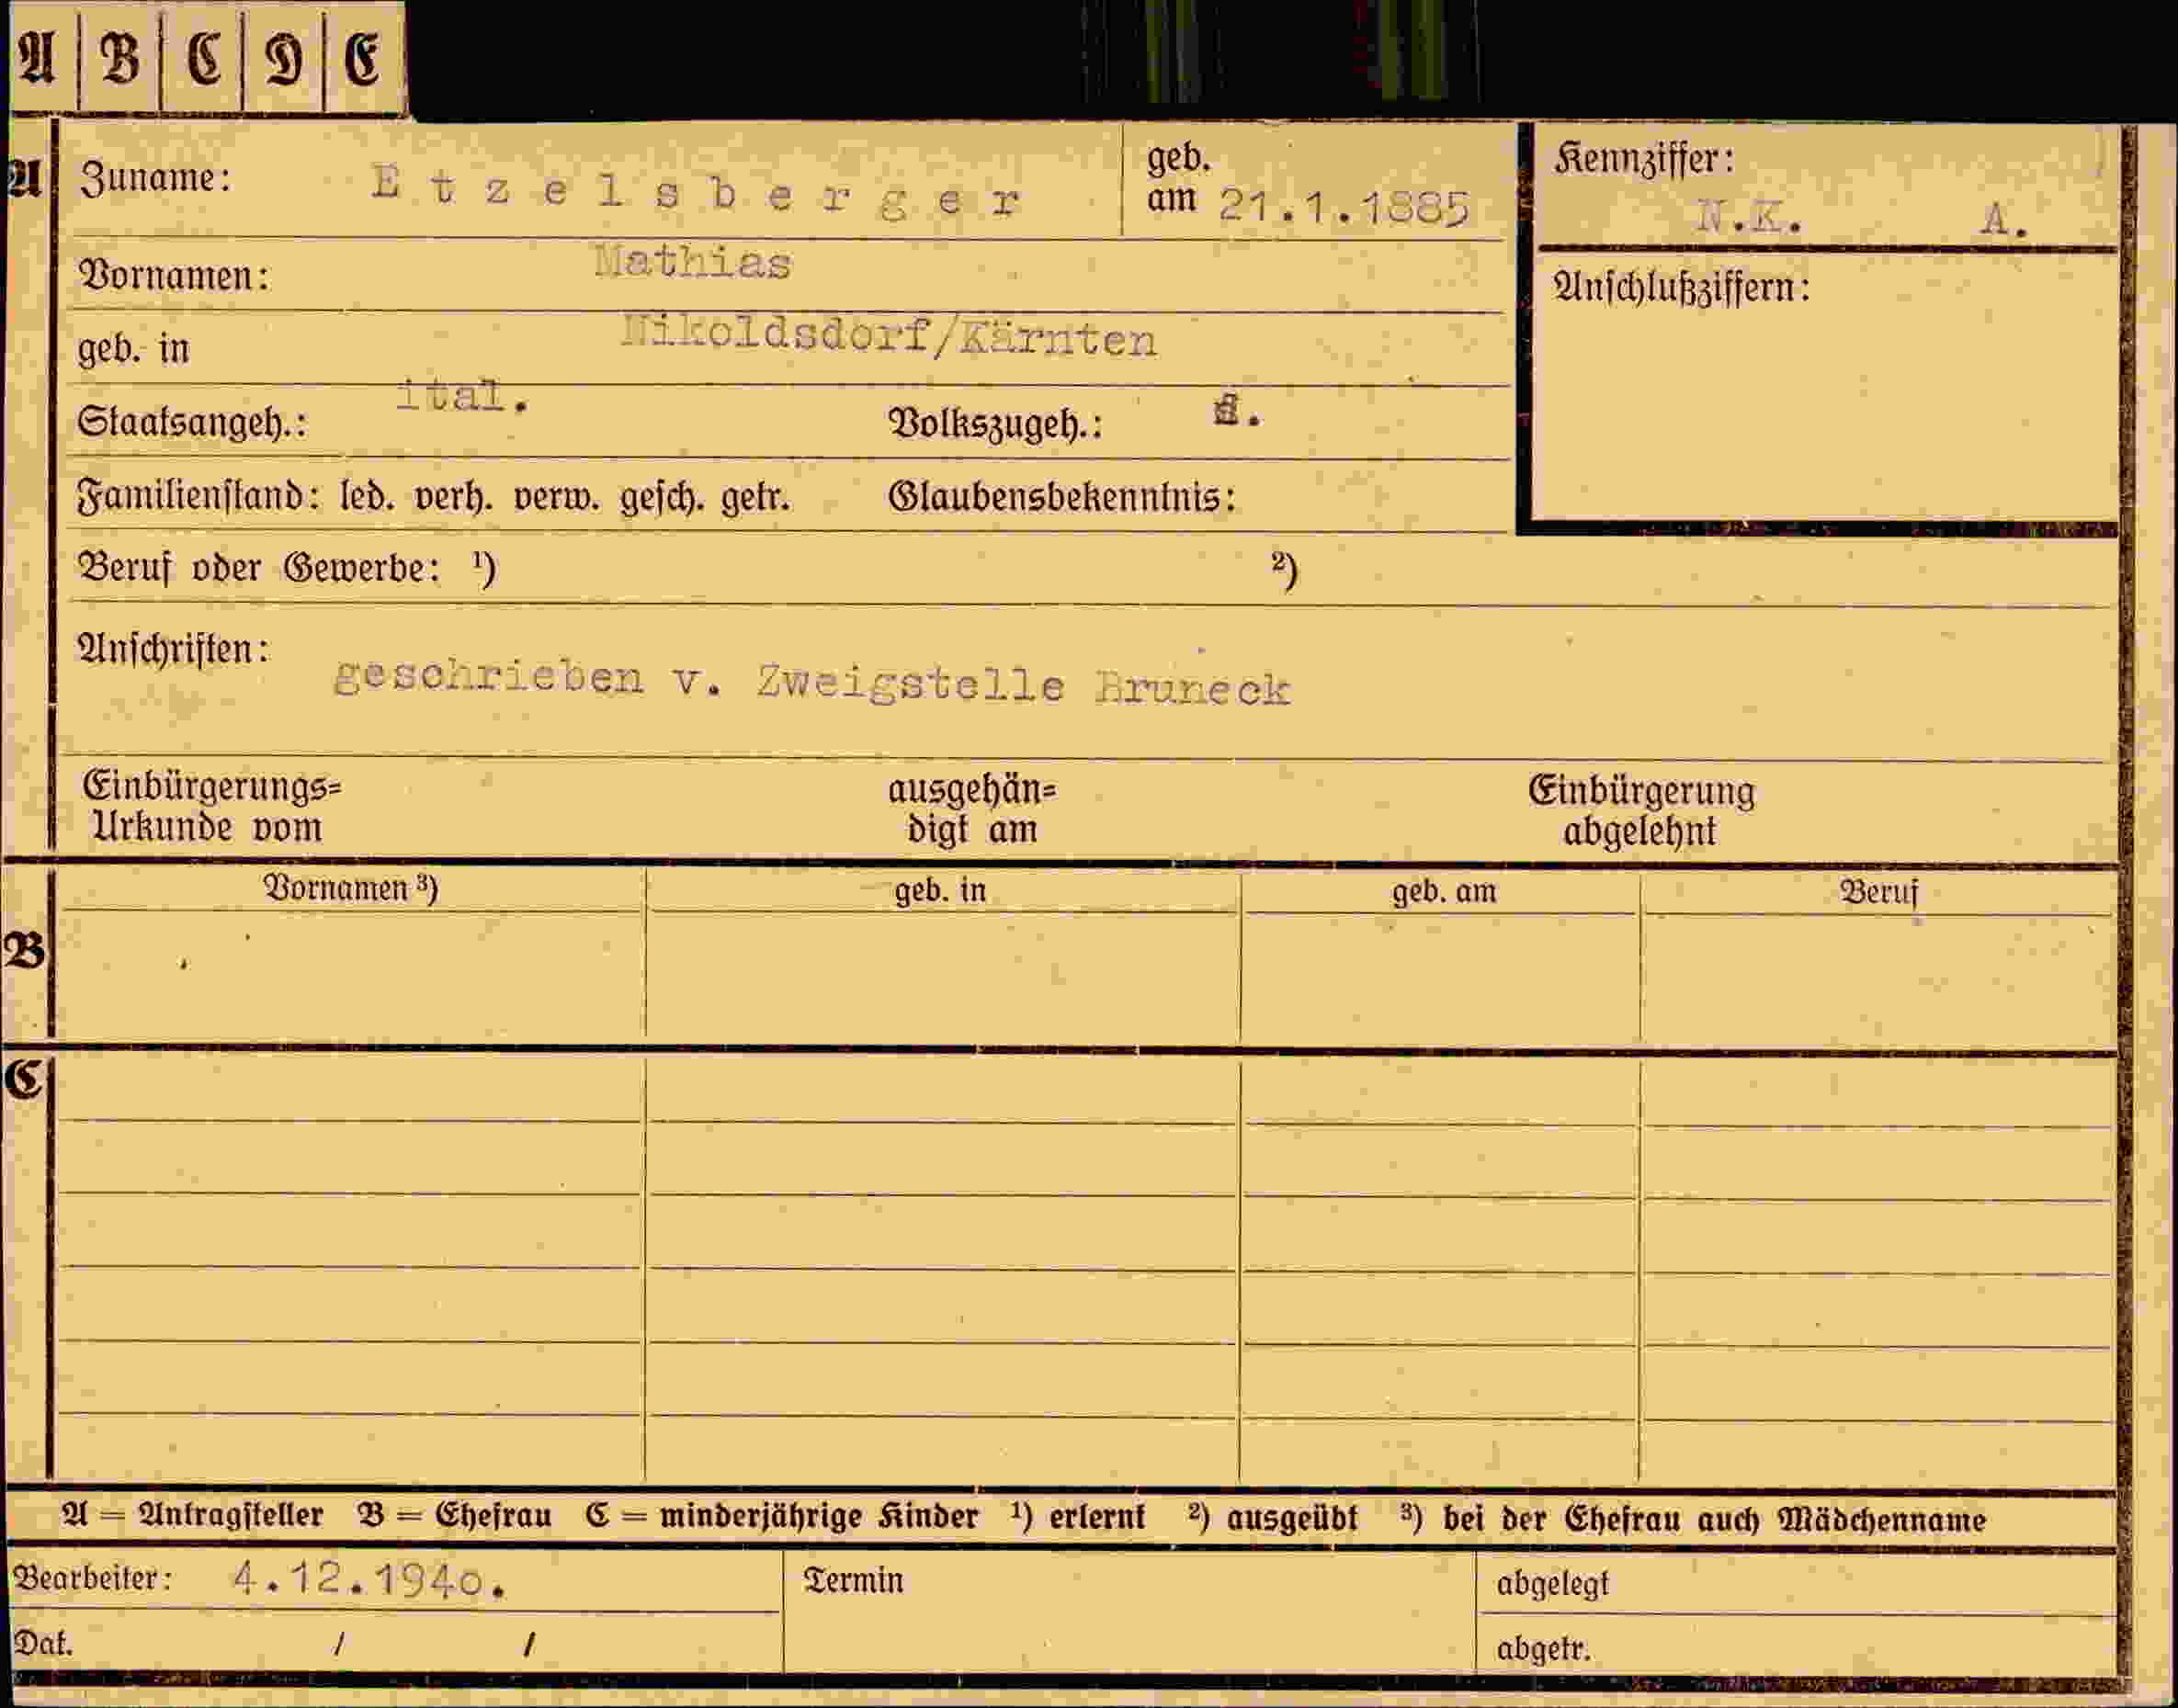 A B C D E
A Zuname: Etzelsberger geb. am 21.1.1885 Kennziffer: N.K. A.
Vornamen: Mathias
Anschlußziffern:
geb. in Nikoldsdorf/Kärnten
Staatsangeh.: ital. Volkszugeh.:
Familienstand: led. verh. verw. gesch. getr. Glaubensbekenntnis:
Beruf oder Gewerbe: ¹) ²)
Anschriften: geschrieben v. Zweigstelle Bruneck
Einbürgerungs= ausgehän= Einbürgerung
Urkunde vom digt am abgelehnt
Vornamen ³) geb. in geb. am Beruf
B
C
A = Antragsteller B = Ehefrau C = minderjährige Kinder ¹) erlernt ²) ausgeübt ³) bei der Ehefrau auch Mädchenname
Bearbeiter: 4.12.1940. Termin abgelegt
Dat. / / abgetr.